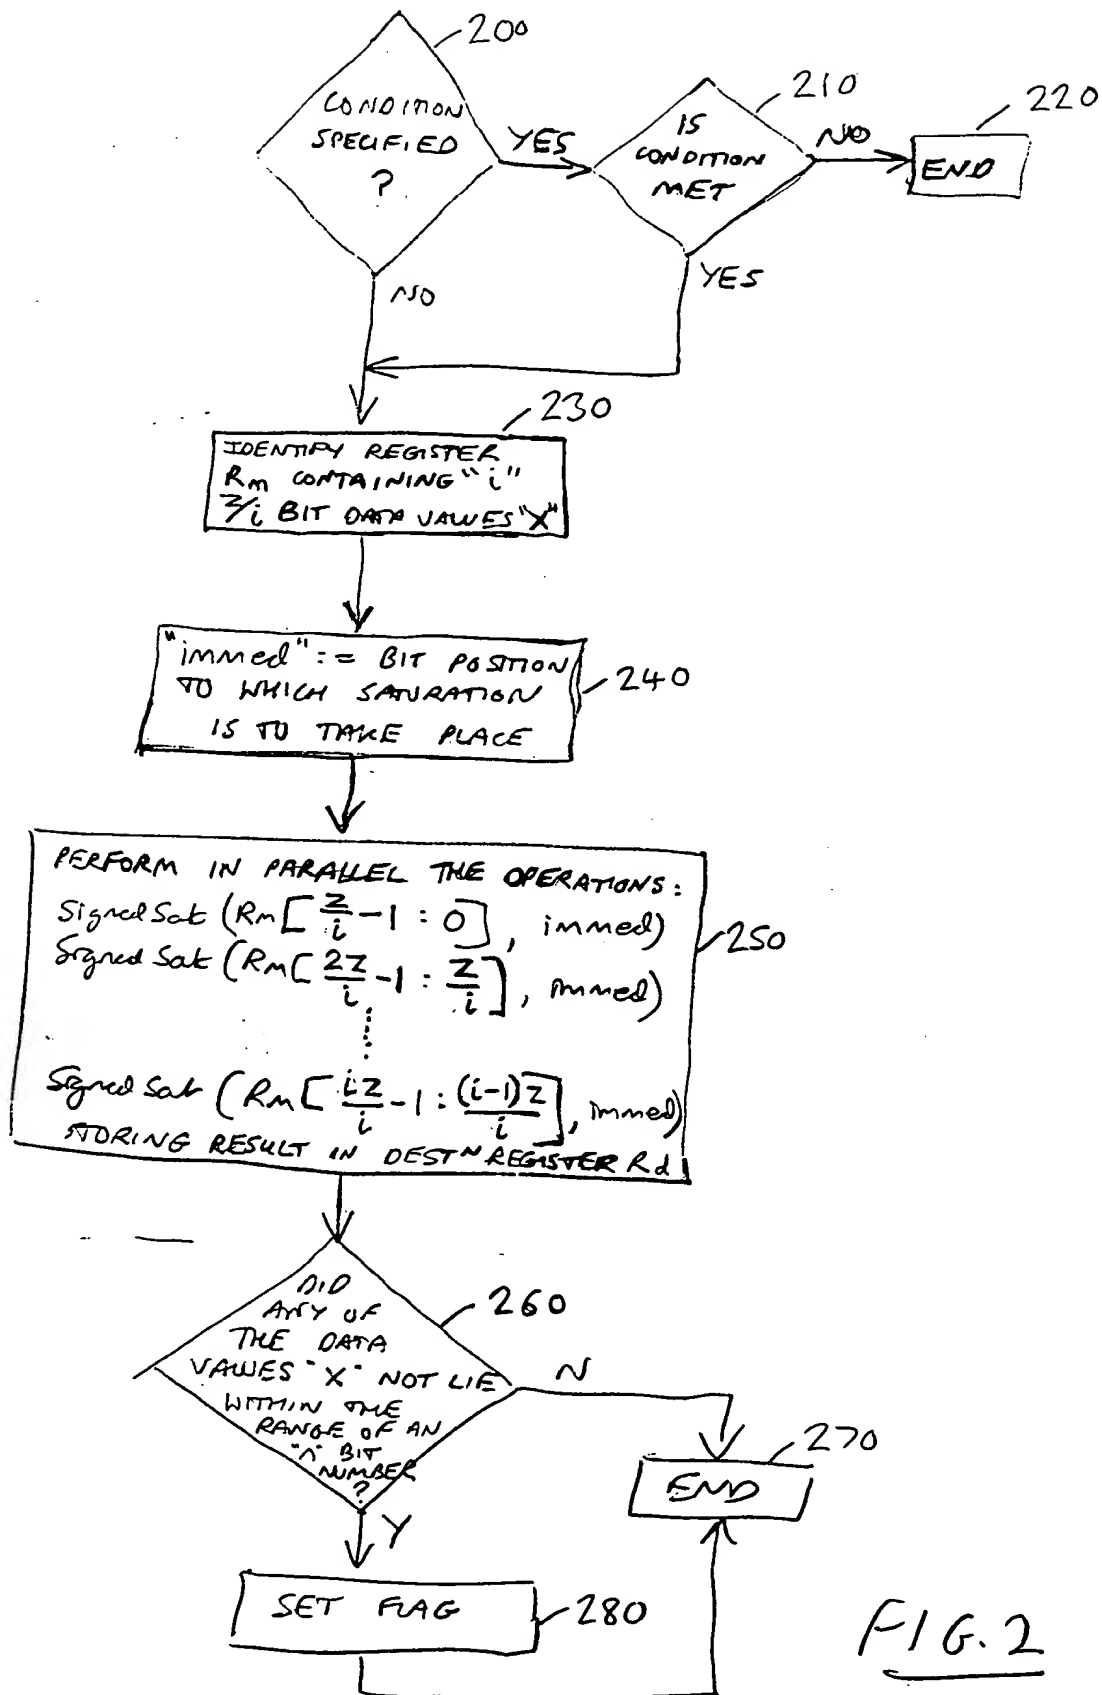 200
CONDITION
SPECIFIED
?
YES
210
IS
CONDITION
MET
NO
220
END
NO
YES
230
IDENTIFY REGISTER
Rm CONTAINING "i"
Z/i BIT DATA VALUES "X"
"immed" := BIT POSITION
TO WHICH SATURATION
IS TO TAKE PLACE
240
PERFORM IN PARALLEL THE OPERATIONS:
SignedSat (Rm[Z/i-1 : 0], immed)
SignedSat (Rm[2Z/i-1 : Z/i], immed)
SignedSat (Rm[iZ/i-1 : (i-1)Z/i], immed)
STORING RESULT IN DESTN REGISTER Rd
250
DID
ANY OF
THE DATA
VALUES "X" NOT LIE
WITHIN THE
RANGE OF AN
"n" BIT
NUMBER
?
260
N
270
END
Y
SET FLAG
280
FIG. 2